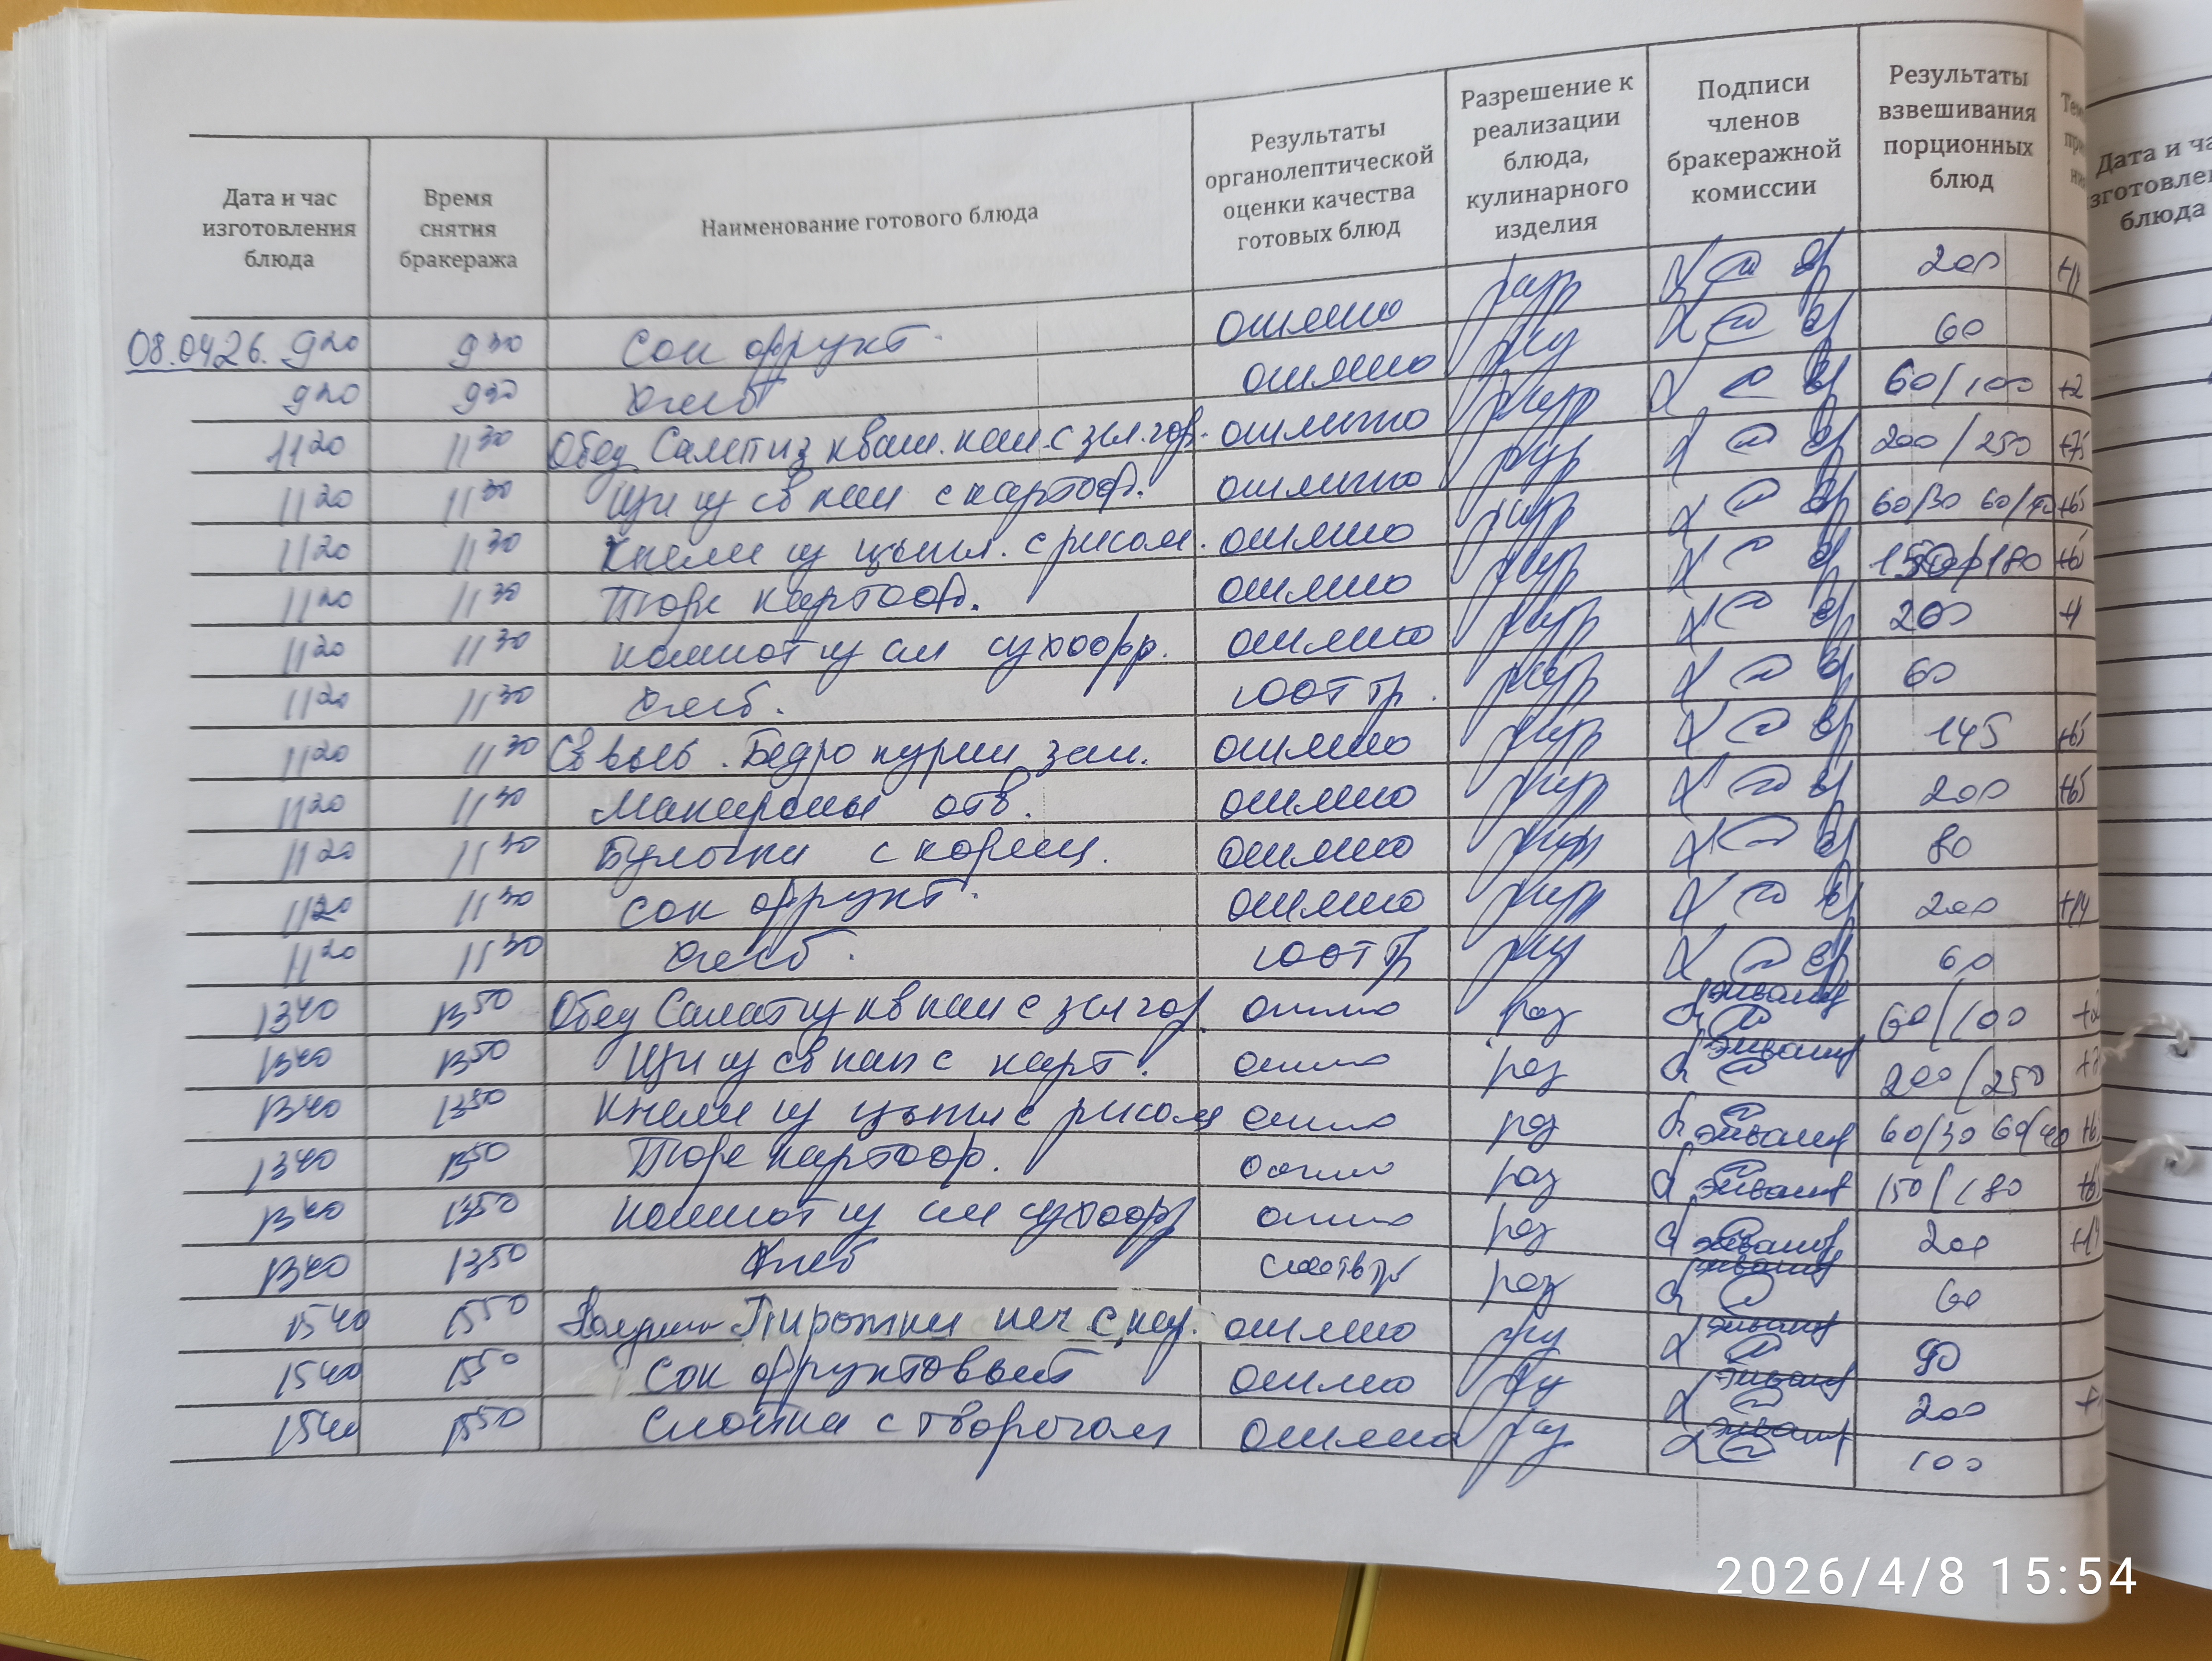 Дата и час изготовления блюда
Время снятия бракеража
Наименование готового блюда
Результаты органолептической оценки качества готовых блюд
Разрешение к реализации блюда, кулинарного изделия
Подписи членов бракеражной комиссии
Результаты взвешивания порционных блюд
08.04.26. 9 20 9 30 Сок фрукт. отлично разр 200
9 20 9 30 Хлеб отлично раз 60
11 20 11 30 Обед Салат из кваш. кап. с зел. гор. отлично разр 60/100 +2
11 20 11 30 Щи из св кап с картоф. отлично разр 200/250 +75
11 20 11 30 Кнели из цыпл. с рисом. отлично разр 60/30 60/40 +65
11 20 11 30 Пюре картоф. отлично разр 150/180 +65
11 20 11 30 Компот из см сухофр. отлично разр 200
11 20 11 30 Хлеб. соот тр. разр 60
11 20 11 30 Св выб. Бедро куриц зап. отлично разр 145 +65
11 20 11 30 Макароны отв. отлично разр 200 +65
11 20 11 30 Булочка с кориц. отлично разр 80
11 20 11 30 Сок фрукт. отлично разр 200 +14
11 20 11 30 Хлеб. соот тр раз 60
13 40 13 50 Обед Салат из кв кап с зел гор. отлично раз 60/100
13 40 13 50 Щи из св кап с карт. отлично раз 200/250
13 40 13 50 Кнели из цыпл с рисом отлично раз 60/30 60/40
13 40 13 50 Пюре картоф. отлично раз 150/180
13 40 13 50 Компот из см сухофр отлично раз 200 +14
13 40 13 50 Хлеб раз 60
15 40 15 50 Полдник Пирожки печ с кап. отлично раз 90
15 40 15 50 Сок фруктовый отлично раз 200
15 40 15 50 Слойка с творогом отлично раз 100
Дата и ча
зготовлен
блюда
2026/4/8 15:54